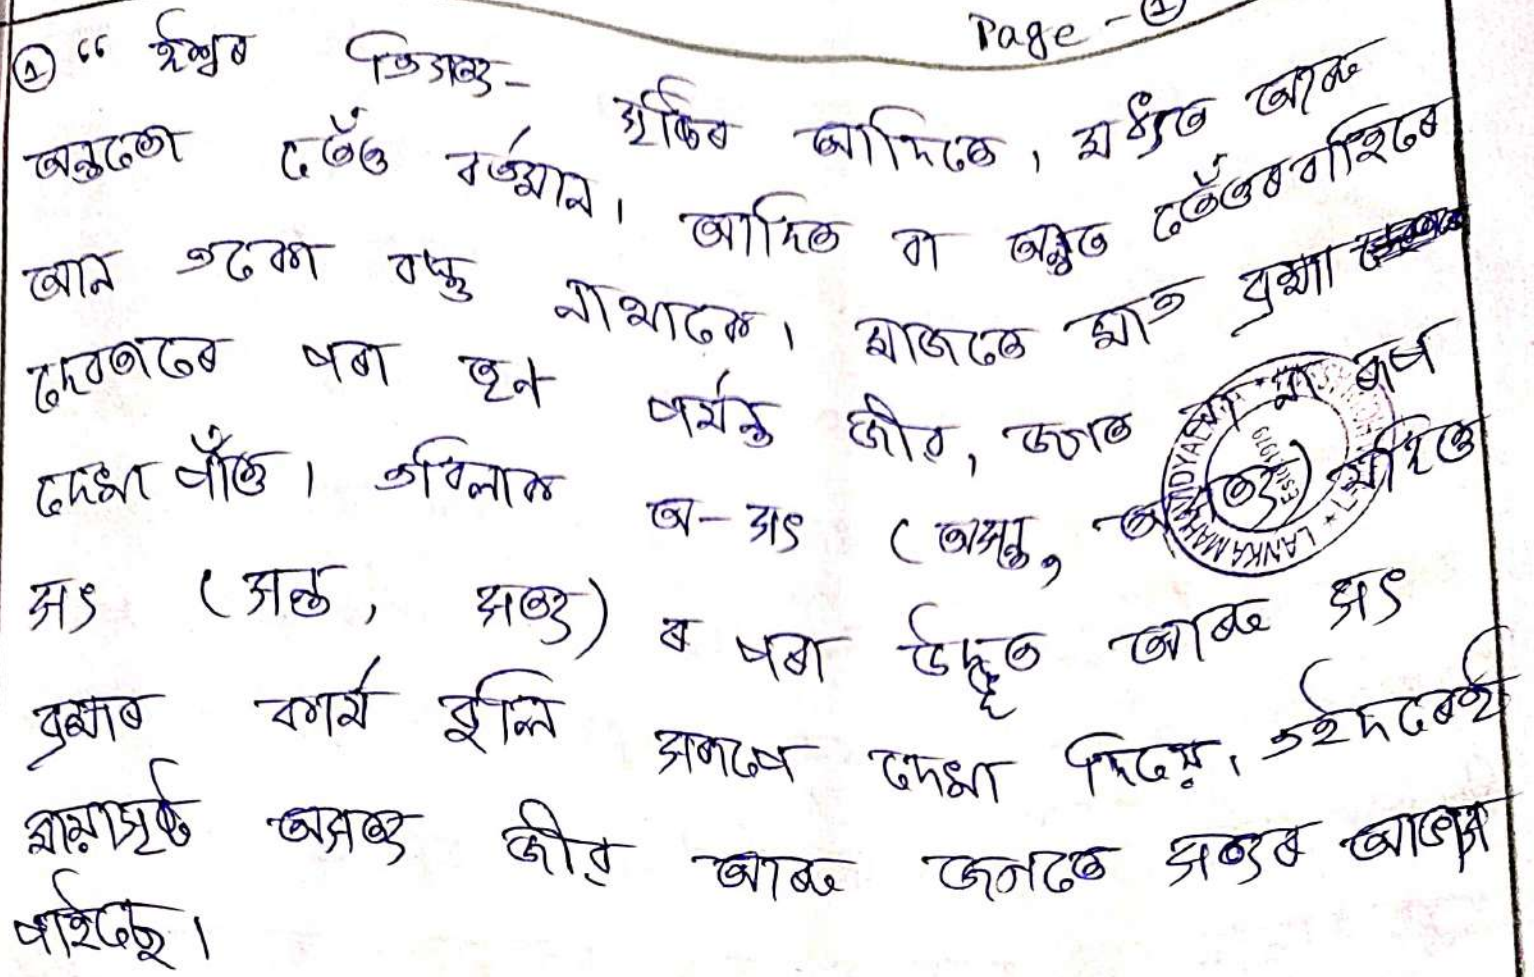 Page - ①
① “ ঈশ্বৰ ত্রিসত্য- সৃষ্টিৰ আদিতে, মধ্যত আৰু
অন্ততো তেওঁ বৰ্তমান। আদিত বা অন্তত তেওঁৰ বাহিৰে
আন একো বস্তু নাথাকে। মাজতে মাত্ৰ ব্ৰহ্মা
দেৱতাৰে পৰা তৃণ পৰ্যন্ত জীৱ, জগত ৰূপ
দেখা পাঁওঁ। এবিলাক অ-সৎ (অসন্ত, অসত্য) যদিও
সৎ (সন্ত, সত্য) ৰ পৰা উদ্ভূত আৰু সৎ
ব্ৰহ্মাৰ কাৰ্য বুলি সৰূপে দেখা দিয়ে, এইদৰেই
মায়াসৃষ্ট অসত্য জীৱ আৰু জগতে সত্যৰ আভাস
পাইছে।
LANKA MAHAVIDYALAYA
ESTD-1970